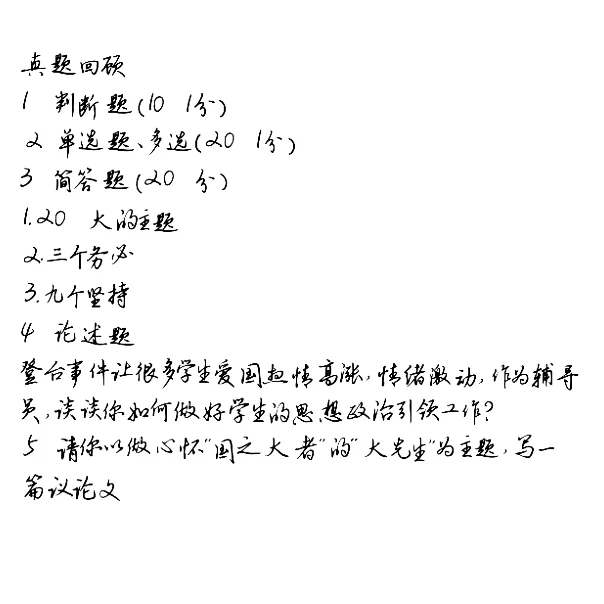 真题回顾
1 判断题(10 1分)
2 单选题、多选(20 1分)
3 简答题(20 分)
1.20 大的主题
2.三个务必
3.九个坚持
4 论述题
登台事件让很多学生爱国热情高涨,情绪激动,作为辅导
员,谈谈你如何做好学生的思想政治引领工作?
5 请你以做心怀"国之大者"的"大先生"为主题,写一
篇议论文